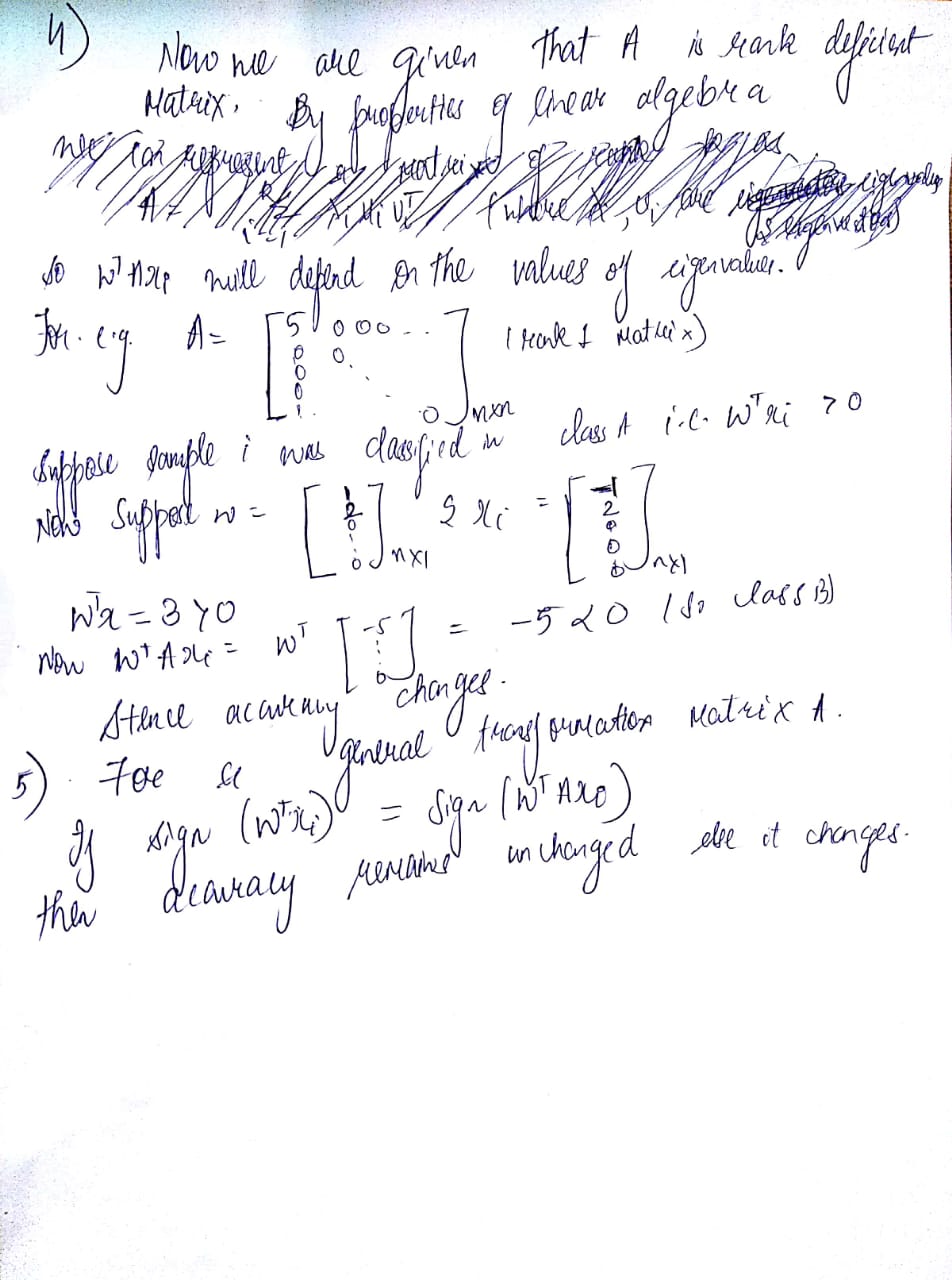 4) Now we are given that A is rank deficient
Matrix. By properties of linear algebra
we can represent matrix of rank as
A = λi ui viT (where λi, vi are eigenvalues
as eigenvectors)
so wT Axi will depend on the values of eigenvalues.
For. e.g. A = [5 0 0 0 .. 0 0 0 0 0 ] nxn (rank 1 Matrix)
Suppose sample i was classified in class A i.e. wT xi > 0
Now suppose w = [1 2 0 : 0] nx1 & xi = [-1 2 0 0 0] nx1
wTx = 3 > 0
Now wT Axi = wT [-5 : 0] = -5 < 0 (so class B)
Hence accuracy changes.
5) For a general transformation Matrix A.
If sign (wTxi) = sign (wT Axi)
then accuracy remains unchanged else it changes.